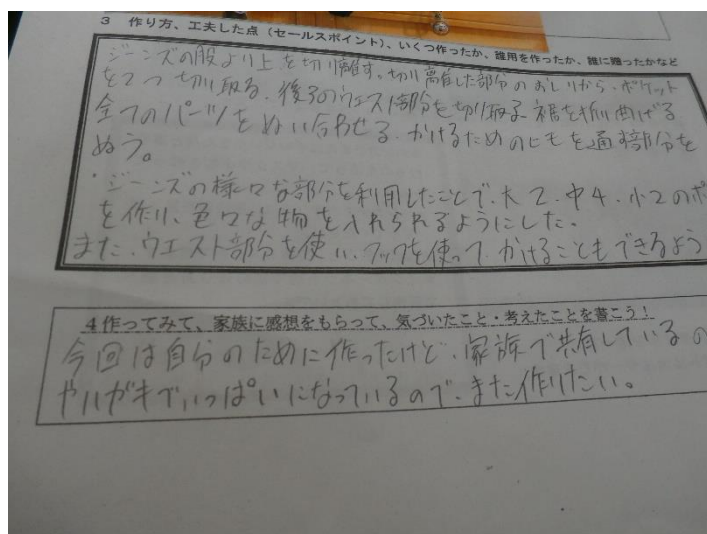 3 作り方、工夫した点（セールスポイント）、いくつ作ったか、誰用を作ったか、誰に贈ったかなど
ジーンズの股より上を切り離す。切り離した部分のおしりから、ポケット
を2つ切り取る。後ろのウエスト部分を切り取る。裾を折り曲げる
全てのパーツをぬい合わせる。かけるためのヒモを通す部分を
ぬう。
・ジーンズの様々な部分を利用したことで、大2、中4、小2のポ
を作り、色々な物を入れられるようにした。
また、ウエスト部分を使い、フックを使って、かけることもできるよう
4 作ってみて、家族に感想をもらって、気づいたこと・考えたことを書こう！
今回は自分のために作ったけど、家族で共有しているの
やハガキでいっぱいになっているので、また作りたい。